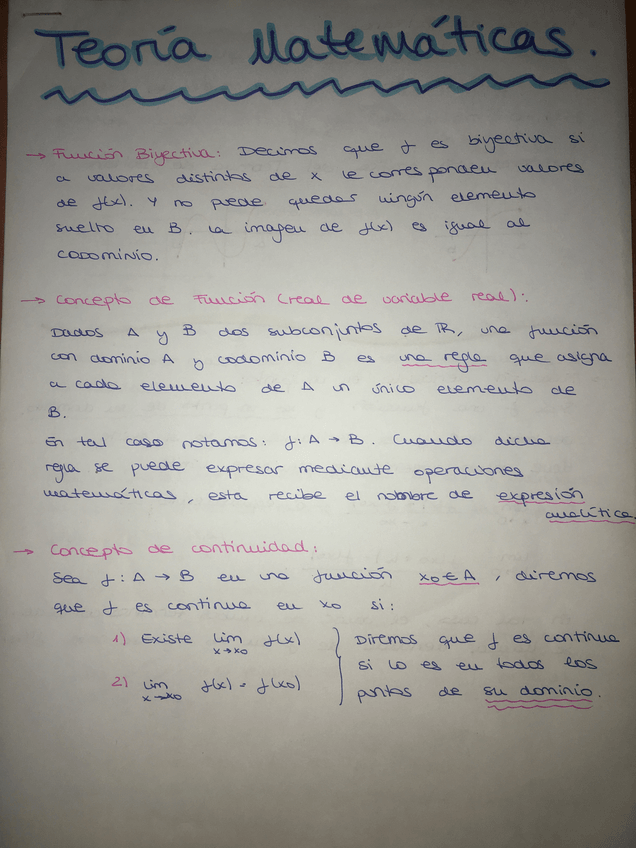 Teoría Matemáticas.
→ Función Biyectiva: Decimos que f es biyectiva si
a valores distintos de x le corresponden valores
de f(x). Y no puede quedar ningún elemento
suelto en B. La imagen de f(x) es igual al
codominio.
→ Concepto de Función (real de variable real):
Dados A y B dos subconjuntos de ℝ, una función
con dominio A y codominio B es una regla que asigna
a cada elemento de A un único elemento de
B.
En tal caso notamos: f: A → B. Cuando dicha
regla se puede expresar mediante operaciones
matemáticas, esta recibe el nombre de expresión
analítica.
→ Concepto de continuidad:
Sea f: A → B en una función x₀ ∈ A, diremos
que f es continua en x₀ si:
1) Existe lim f(x) } Diremos que f es continua
x→x₀ si lo es en todos los
2) lim f(x) = f(x₀) puntos de su dominio.
x→x₀